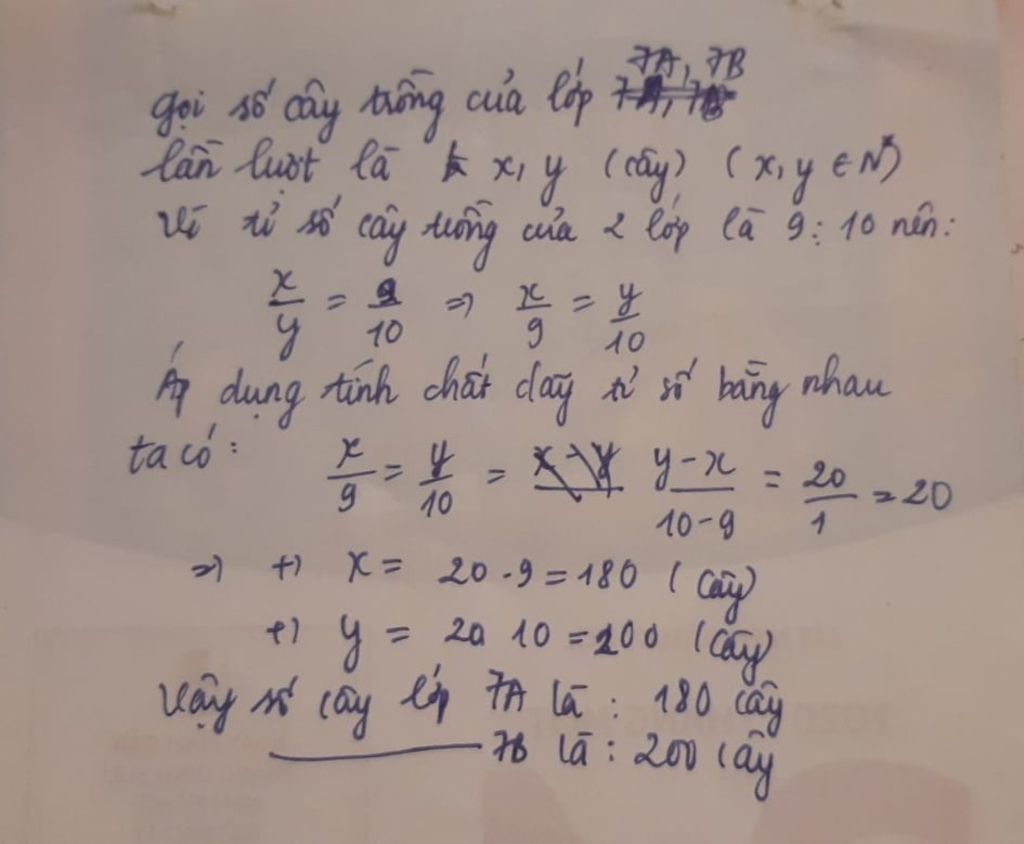 7A, 7B
gọi số cây trồng của lớp
lần lượt là x, y (cây) (x, y ∈ N*)
Vì tỉ số cây trồng của 2 lớp là 9 : 10 nên:
x/y = 9/10 => x/9 = y/10
Áp dụng tính chất dãy tỉ số bằng nhau
ta có: x/9 = y/10 = y-x/10-9 = 20/1 = 20
=> +) x = 20 . 9 = 180 (cây)
+) y = 20 10 = 200 (cây)
Vậy số cây lớp 7A là : 180 cây
7B là : 200 cây